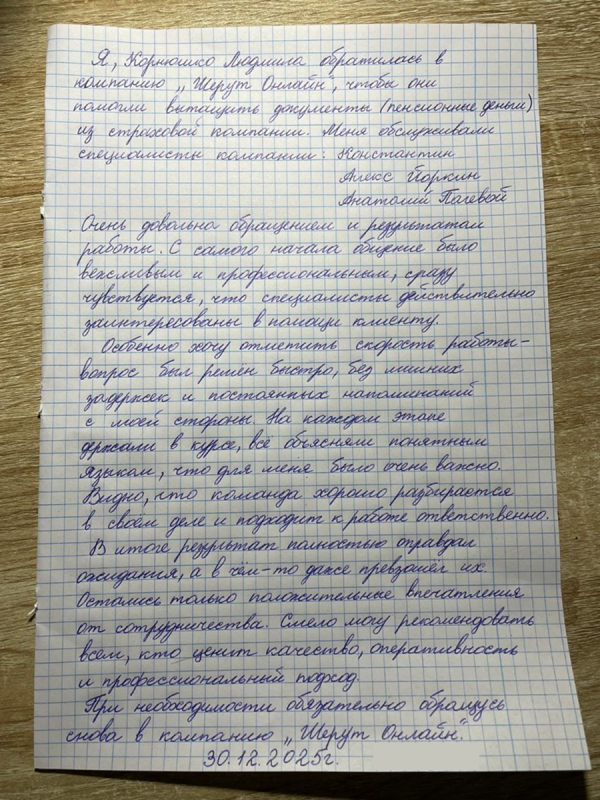 Я, Корнюшко Людмила обратилась в
компанию „Шерут Онлайн", чтобы они
помогли вытащить документы (пенсионные деньги)
из страховой компании. Меня обслуживали
специалисты компании: Константин
Алекс Йоркин
Анатолий Полевой
Очень довольна обращением и результатом
работы. С самого начала общение было
вежливым и профессиональным, сразу
чувствуется, что специалисты действительно
заинтересованы в помощи клиенту.
Особенно хочу отметить скорость работы-
вопрос был решен быстро, без лишних
задержек и постоянных напоминаний
с моей стороны. На каждом этапе
держали в курсе, всё объясняли понятным
языком, что для меня было очень важно.
Видно, что команда хорошо разбирается
в своём деле и подходит к работе ответственно.
В итоге результат полностью оправдал
ожидания, а в чём-то даже превзошёл их.
Остались только положительные впечатления
от сотрудничества. Смело могу рекомендовать
всем, кто ценит качество, оперативность
и профессиональный подход.
При необходимости обязательно обращусь
снова в компанию „Шерут Онлайн".
30.12.2025г.